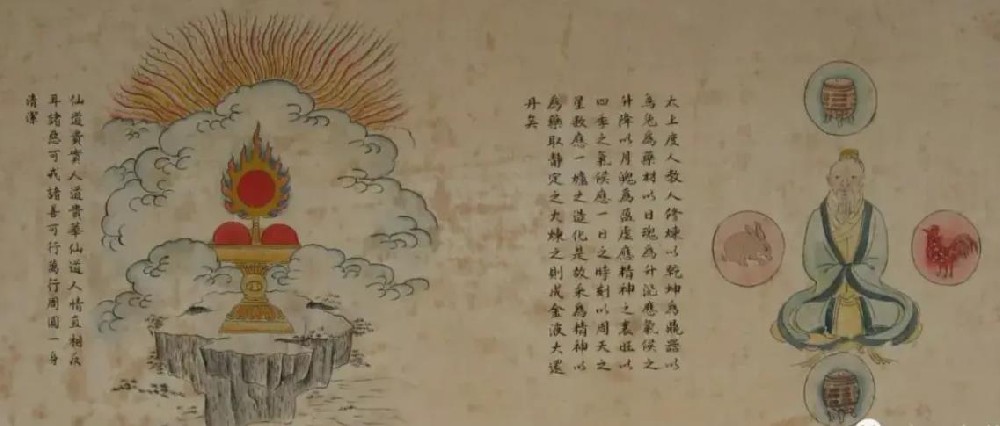 太上度人教人修煉以乾坤為鼎器以
烏兔為藥材以日魂為升沉應氣候之
升降以月魄為盈虛應精神之衰旺以
四季之氣候應一日之時刻以周天之
星數應一爐之造化是故采為精神以
為藥取靜定之火煉之則成金液大還
丹矣
仙道貴實人道貴華仙道人情直相反
耳諸惡可戒諸善可行萬行周圓一身
清潔